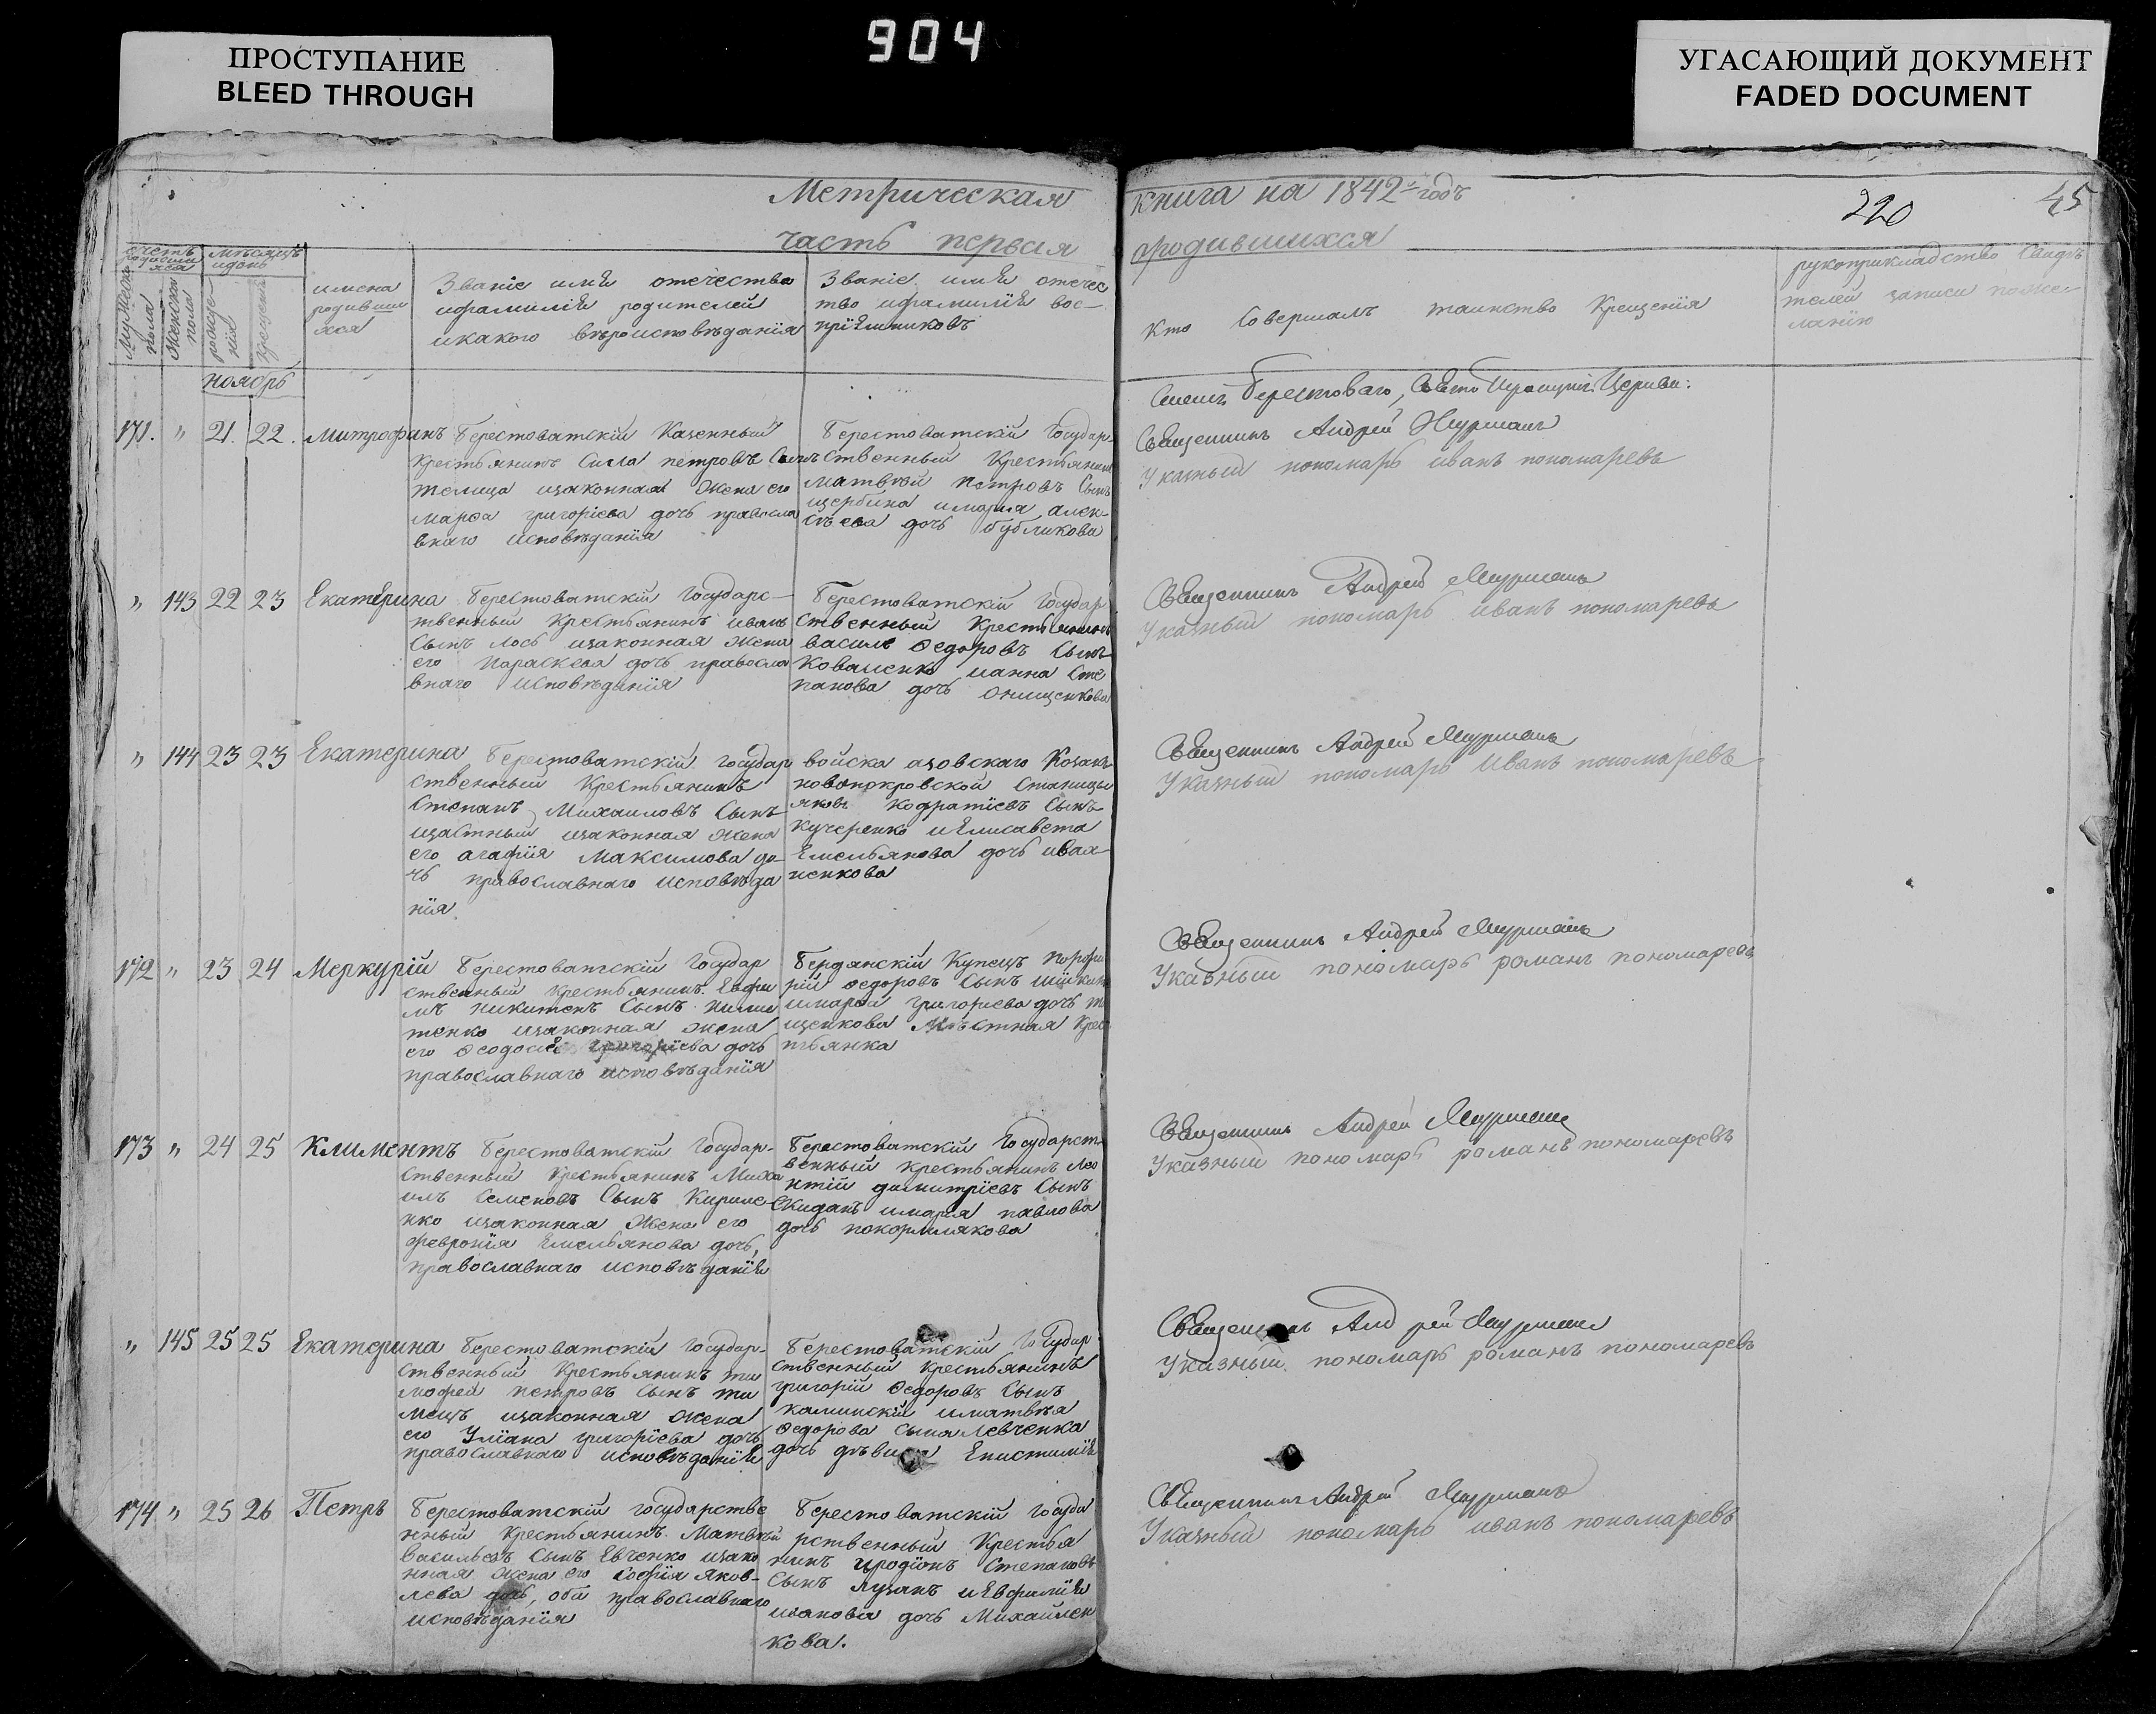 904
ПРОСТУПАНИЕ
BLEED THROUGH
УГАСАЮЩИЙ ДОКУМЕНТ
FADED DOCUMENT
Метрическая книга на 1842й годъ
220
45
часть первая о родившихся
мѣсяцъ
и день
Мужеска
пола
Женска
пола
рожде-
нія
крещенія
имена
родивши
хся
Званіе имя отечество
и фамилія родителей
и какого вѣроисповѣданія
Званіе имя отечес
тво и фамилія вос-
пріемниковъ
Кто Совершалъ таинство Крещенія
рукоприкладство Свидѣ
телей записи по же-
ланію
ноябрь
171. " 21. 22. Митрофанъ
Берестоватскій Казенный
Крестьянинъ Сила петровъ Сынъ
изаконная Жена его
Марѳа григоріева дочь правосла
внаго исповѣданія
Берестоватскій Государ-
ственный Крестьянинъ
матвѣй Петровъ Сынъ
щербина имарія алек-
сѣева дочь бубликова
Берестоваго, Церкви:
Священникъ Андрей
Указный пономарь иванъ пономаревъ
" 143 22 23 Екатерина
Берестоватскій Государс-
твенный Крестьянинъ иванъ
Сынъ лось изаконная жена
его Параскева дочь правосла
внаго исповѣданія
Берестоватскій Государ
ственный Крестьянинъ
василе Ѳедоровъ Сынъ
Коваленко ианна Сте
панова дочь онищенкова
Священникъ Андрей
Указный пономарь иванъ пономаревъ
" 144 23 23 Екатерина
Берестоватскій государ
ственный Крестьянинъ
Степанъ Михаиловъ Сынъ
щастный изаконная жена
его агафія Максимова до-
чь православнаго исповѣда
нія
войска азовскаго Козакъ
новопокровской Станицы
яковъ Кодратіевъ Сынъ
Кучеренко иЕлисавета
Емельянова дочь иван-
ченкова
Священникъ Андрей
Указный пономарь иванъ пономаревъ
172 " 23 24 Меркурій
Берестоватскій Государ
ственный крестьянинъ Евфи
мъ никитенъ Сынъ
тенко изаконная жена
его Ѳеодосія григоріева дочь
православнаго исповѣданія
Бердянскій Купецъ Порфи
рій Ѳедоровъ Сынъ
имарѳа григориева дочь
щенкова мѣстная Крес
тьянка
Священникъ Андрей
Указный пономарь романъ пономаревъ
173 " 24 25 Климентъ
Берестоватскій Государ-
ственный Крестьянинъ Миха
илъ Семеновъ Сынъ Кириле-
нко изаконная Жена его
февронія Емельянова дочь,
православнаго исповѣданія
Берестоватскій Государст-
венный крестьянинъ лео
нтій димитріевъ Сынъ
Скиданъ имарія павлова
дочь покормлякова
Священникъ Андрей
Указный пономарь романъ пономаревъ
" 145 25 25 Екатерина
Берестоватскій Государ-
ственный Крестьянинъ ти
мофей петровъ Сынъ ти
мецъ изаконная жена
его Уліана григоріева дочь
православнаго исповѣданія
Берестоватскій Государ
ственный крестьянинъ
григорій Ѳедоровъ Сынъ
каминскій иматвѣя
Ѳедорова Сына Левченка
дочь дѣвица Епистимія
Священникъ Андрей
Указный пономарь романъ пономаревъ
174 " 25 26 Петръ
Берестоватскій государстве
нный Крестьянинъ Матвѣй
васильевъ Сынъ Евченко изако
нная жена его софія Яков-
лева дочь, оба православнаго
исповѣданія
Берестоватскій Госуда
рственный Крестья
нинъ иродіонъ Степановъ
Сынъ лузанъ иЕвфимія
иванова дочь Михайлен
кова.
Священникъ Андрей
Указный пономарь иванъ пономаревъ